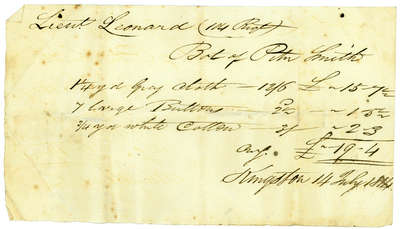 Lieut Leonard (104 Regt)
Bot of Peter Smith
1¼ yd Gray Cloth — 12/6 £ ~ 15 - 7½
7 large Buttons — 2½ ~ 1 - 5½
¾ yd white Cotton — 3/ ~ 2 3
£ ~ 19 - 4
Kingston 14 July 1814